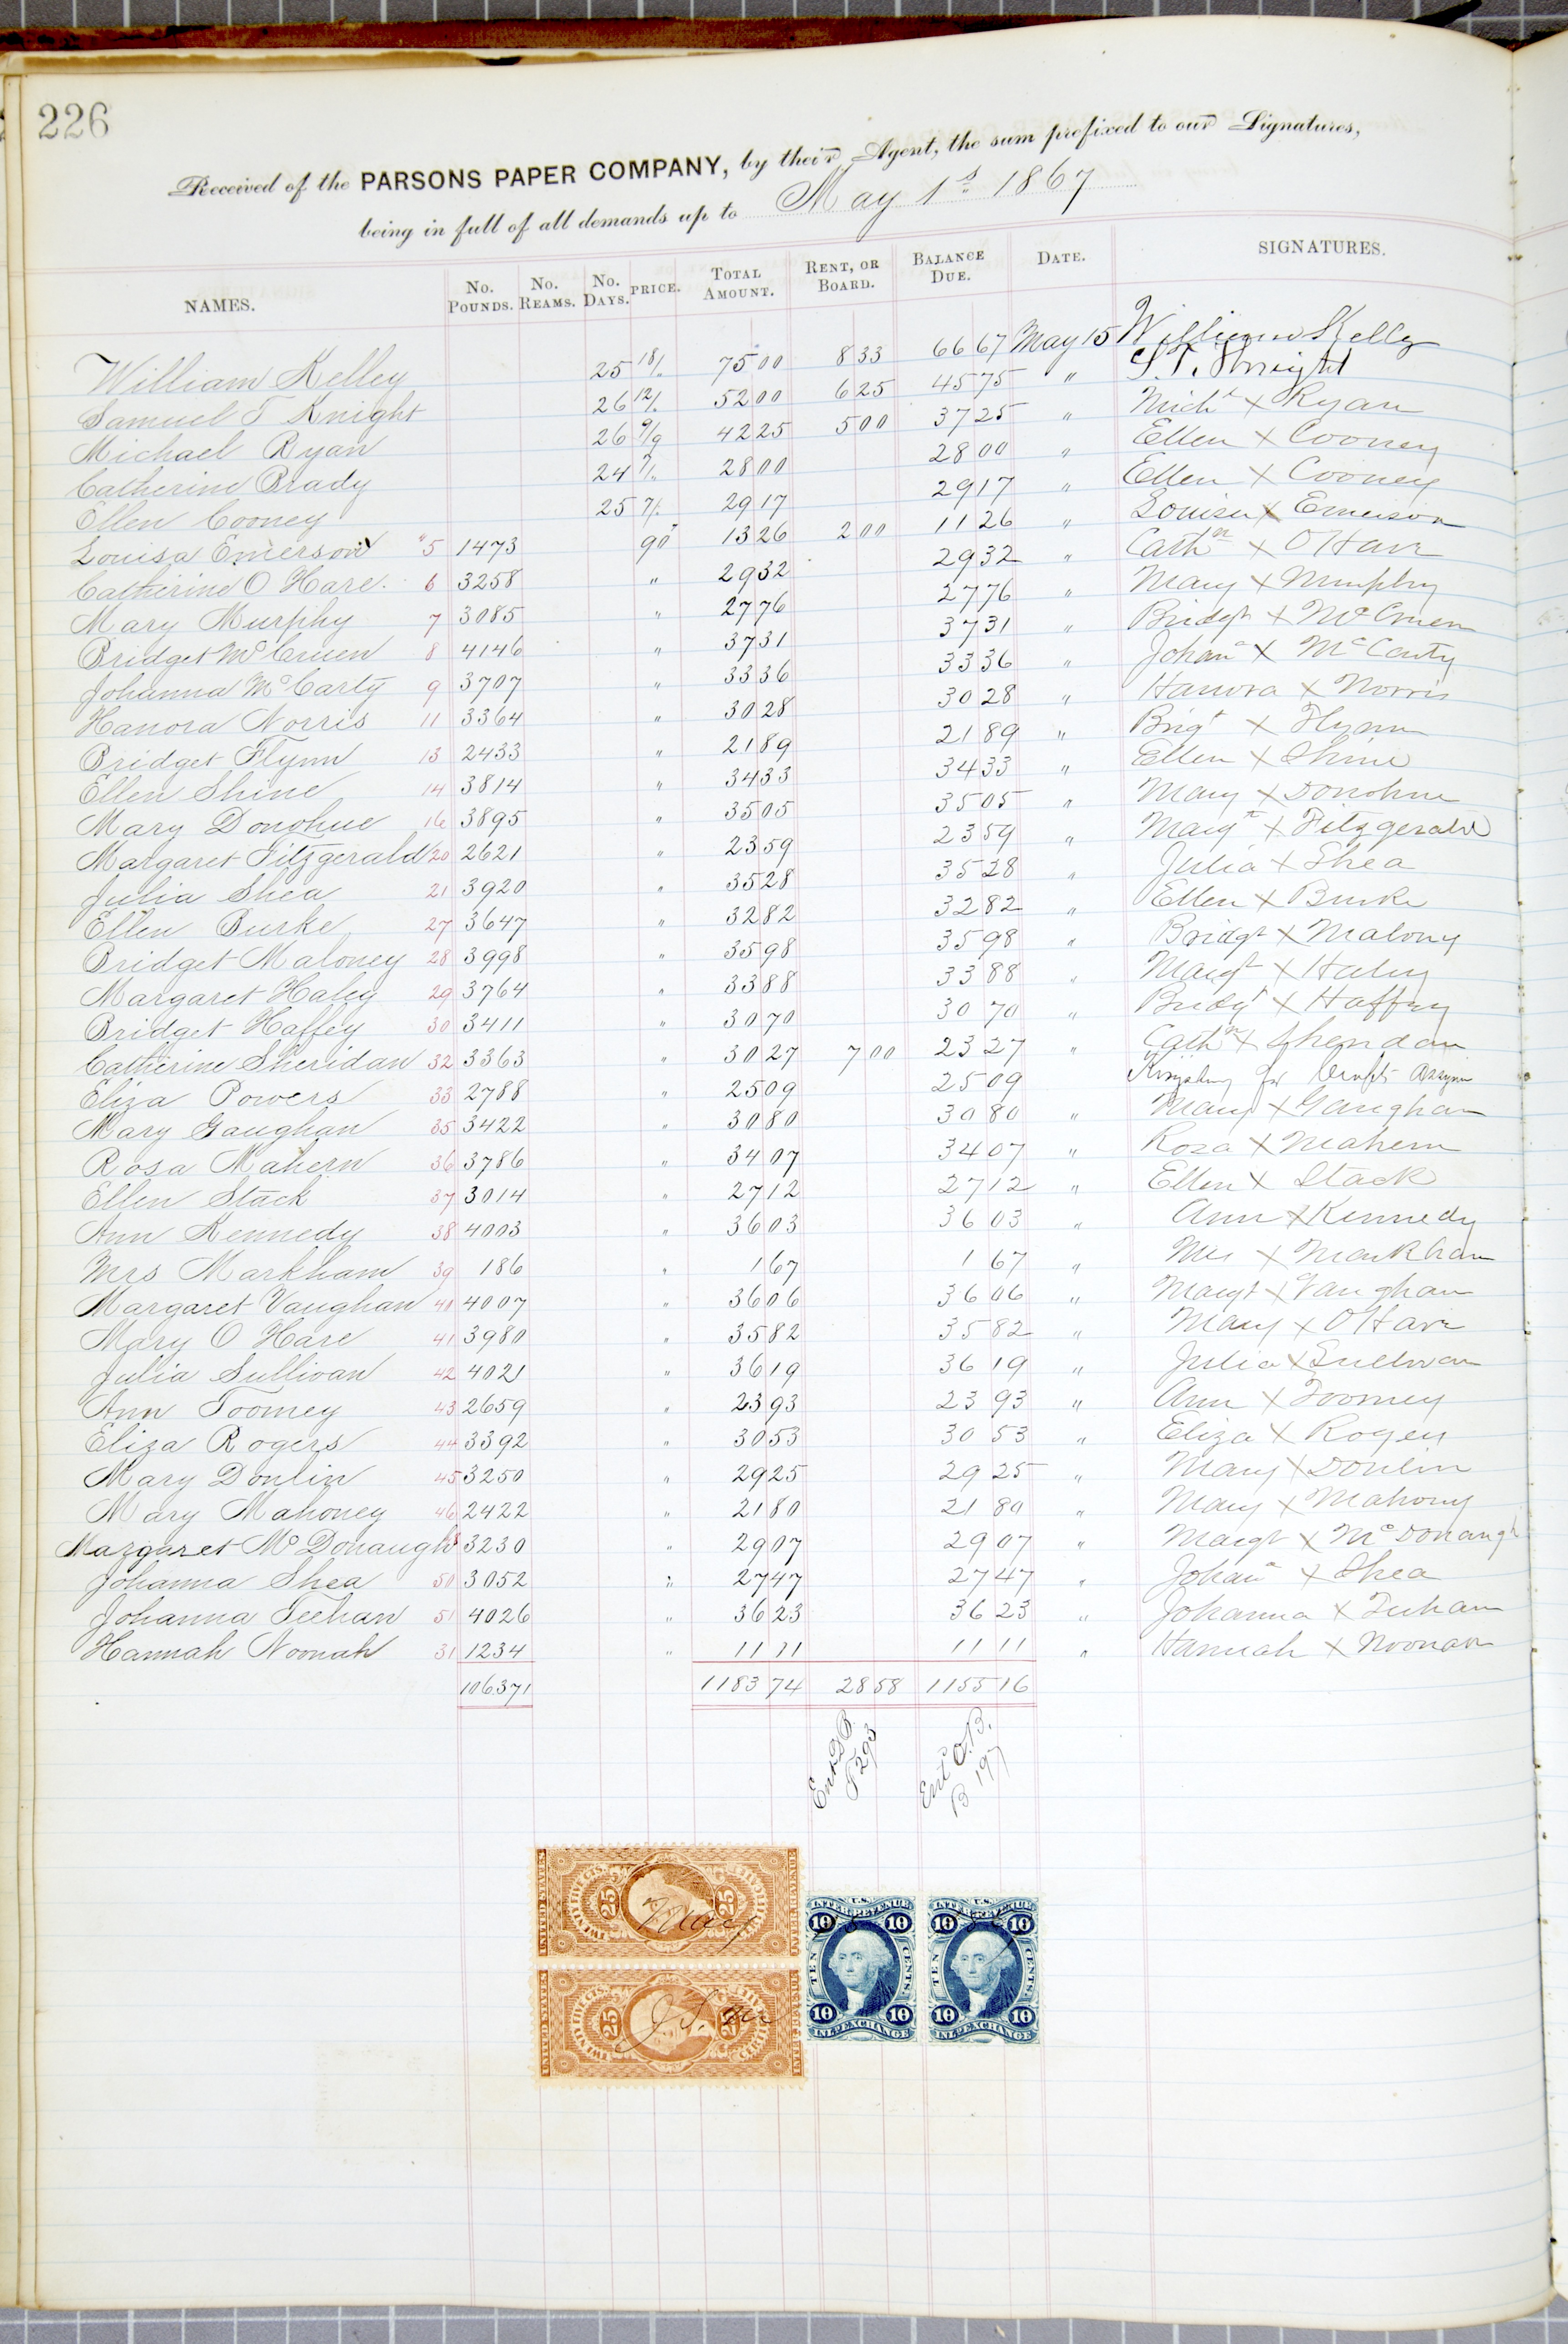 226
Received of the PARSONS PAPER COMPANY, by their Agent, the sum prefixed to our Signatures,
being in full of all demands up to May 1st 1867
NAMES. No. POUNDS. No. REAMS. No. DAYS. PRICE. TOTAL AMOUNT. RENT, OR BOARD. BALANCE DUE. DATE. SIGNATURES.
William Kelley 25 18/. 75 00 8 33 66 67 May 15 William Kelly
Samuel T Knight 26 12/. 52 00 6 25 45 75 " S. T. Knight
Michael Ryan 26 9/9 42 25 5 00 37 25 " Michl X Ryan
Catherine Brady 24 7/. 28 00 28 00 " Ellen X Cooney
Ellen Cooney 25 7/. 29 17 29 17 " Ellen X Cooney
Louisa Emerson 5 1473 90 13 26 2 00 11 26 " Louisa X Emerson
Catherine O Hare 6 3258 " 29 32 29 32 " Cathn X OHare
Mary Murphy 7 3085 " 27 76 27 76 " Mary X Murphy
Bridget McCruen 8 4146 " 37 31 37 31 " Bridgt X McCruen
Johanna McCarty 9 3707 " 33 36 33 36 " Johana X McCarty
Hanora Norris 11 3364 " 30 28 30 28 " Hanora X Norris
Bridget Flynn 13 2433 " 21 89 21 89 " Brigt X Flynn
Ellen Shine 14 3814 " 34 33 34 33 " Ellen X Shine
Mary Donohue 16 3895 " 35 05 35 05 " Mary X Donohue
Margaret Fitzgerald 20 2621 " 23 59 23 59 " Margt X Fitzgerald
Julia Shea 21 3920 " 35 28 35 28 " Julia X Shea
Ellen Burke 27 3647 " 32 82 32 82 " Ellen X Burke
Bridget Maloney 28 3998 " 35 98 35 98 " Bridgt X Malony
Margaret Haley 29 3764 " 33 88 33 88 " Margt X Haley
Bridget Haffey 30 3411 " 30 70 30 70 " Bridgt X Haffey
Catherine Sheridan 32 3363 " 30 27 7 00 23 27 " Cathn X Sheridan
Eliza Powers 33 2788 " 25 09 25 09 Kingsbury for
Mary Gaughan 35 3422 " 30 80 30 80 " Mary X Gaughan
Rosa Mahern 36 3786 " 34 07 34 07 " Rosa X Mahern
Ellen Stack 37 3014 " 27 12 27 12 " Ellen X Stack
Ann Kennedy 38 4003 " 36 03 36 03 " Ann X Kennedy
Mrs Markham 39 186 " 1 67 1 67 " Mrs X Markham
Margaret Vaughan 40 4007 " 36 06 36 06 " Margt X Vaughan
Mary O Hare 41 3980 " 35 82 35 82 " Mary X OHare
Julia Sullivan 42 4021 " 36 19 36 19 " Julia X Sullivan
Ann Toomey 43 2659 " 23 93 23 93 " Ann X Toomey
Eliza Rogers 44 3392 " 30 53 30 53 " Eliza X Rogers
Mary Donlin 45 3250 " 29 25 29 25 " Mary X Donlin
Mary Mahoney 46 2422 " 21 80 21 80 " Mary X Mahony
Margaret McDonaugh 3230 " 29 07 29 07 " Margt X McDonaugh
Johanna Shea 50 3052 " 27 47 27 47 " Johana X Shea
Johanna Teehan 51 4026 " 36 23 36 23 " Johanna X Tuhan
Hannah Noonah 31 1234 " 11 11 11 11 " Hannah X Noonan
106371 1183 74 28 58 1155 16
Ent D.B. F 293
Entd C.B. B 197
UNITED STATES TWENTY FIVE CTS. 25 25 INTER. REVENUE May
UNITED STATES TWENTY FIVE CTS. 25 25 INTER. REVENUE J. S. M
U.S. INTER. REVENUE 10 10 TEN CENTS 10 10 INL. EXCHANGE
U.S. INTER. REVENUE 10 10 TEN CENTS 10 10 INL. EXCHANGE